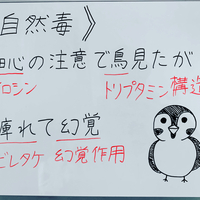 自然毒》
心の注意で鳥見たが
ロシン トリプタミン構造
痺れて幻覚
ビレタケ 幻覚作用